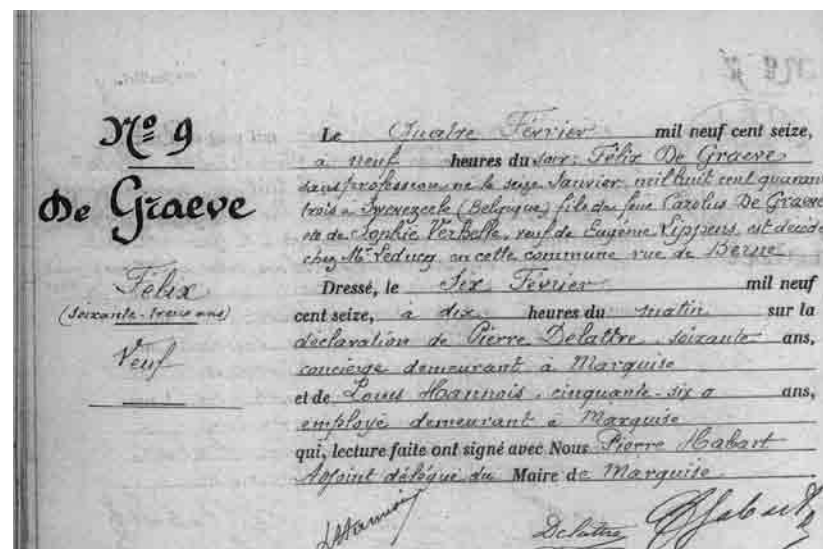 Nº 9
De Graeve
Félix
(Soixante-treize ans)
Veuf
Le Quatre Février mil neuf cent seize,
à neuf heures du soir, Félix De Graeve
sans profession né le seize Janvier mil huit cent quarante
trois à (Belgique) fils de feu Carolus De Graeve
et de Sophie Verbelle, veuf de Eugénie Lippens, est décédé
chez Mr Leducq en cette commune rue de Berne
Dressé, le Six Février mil neuf
cent seize, à dix heures du matin sur la
déclaration de Pierre Delattre, soixante ans,
concierge demeurant à Marquise
et de Louis Hannois, cinquante-six ans,
employé demeurant à Marquise
qui, lecture faite ont signé avec Nous Pierre Habart
Adjoint délégué du Maire de Marquise
Delattre